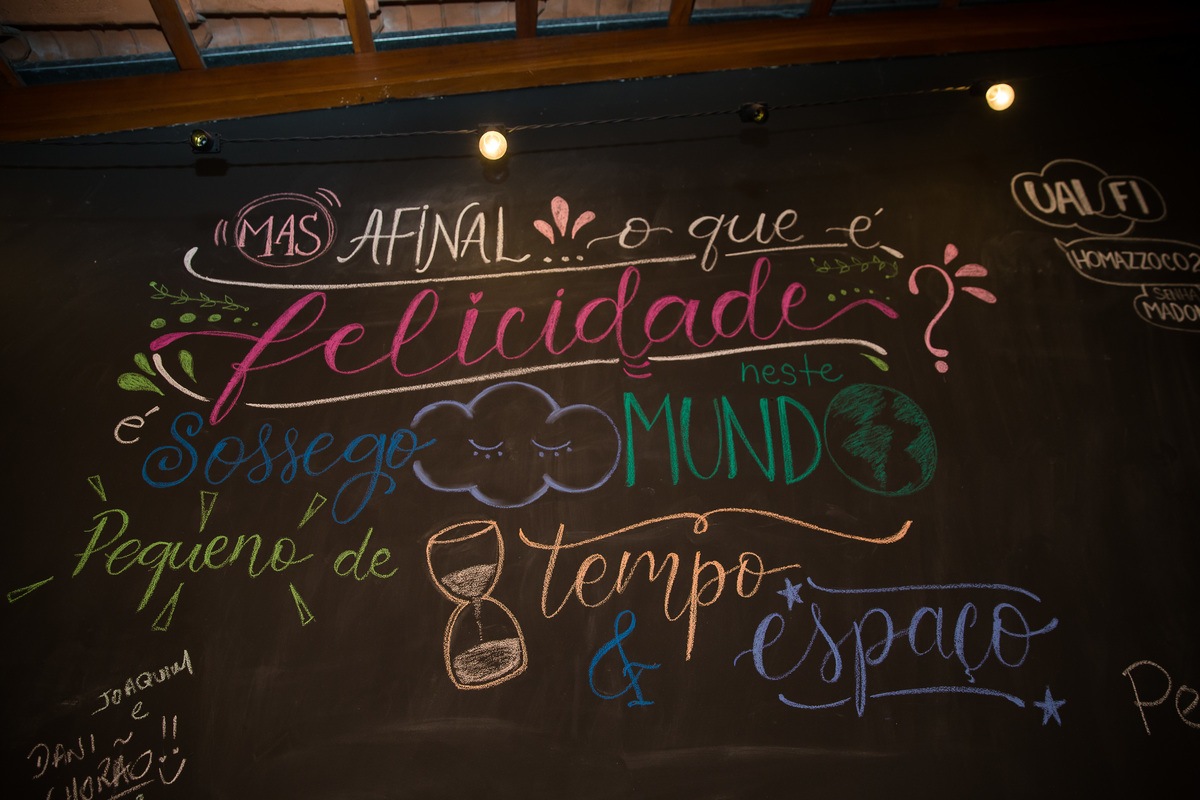 MAS AFINAL... o que é
felicidade?
é Sossego neste MUNDO
Pequeno de tempo
& espaço
UAI FI
HOMAZZOCO2
JOAQUIM
e
DANI
CHORÃO!!